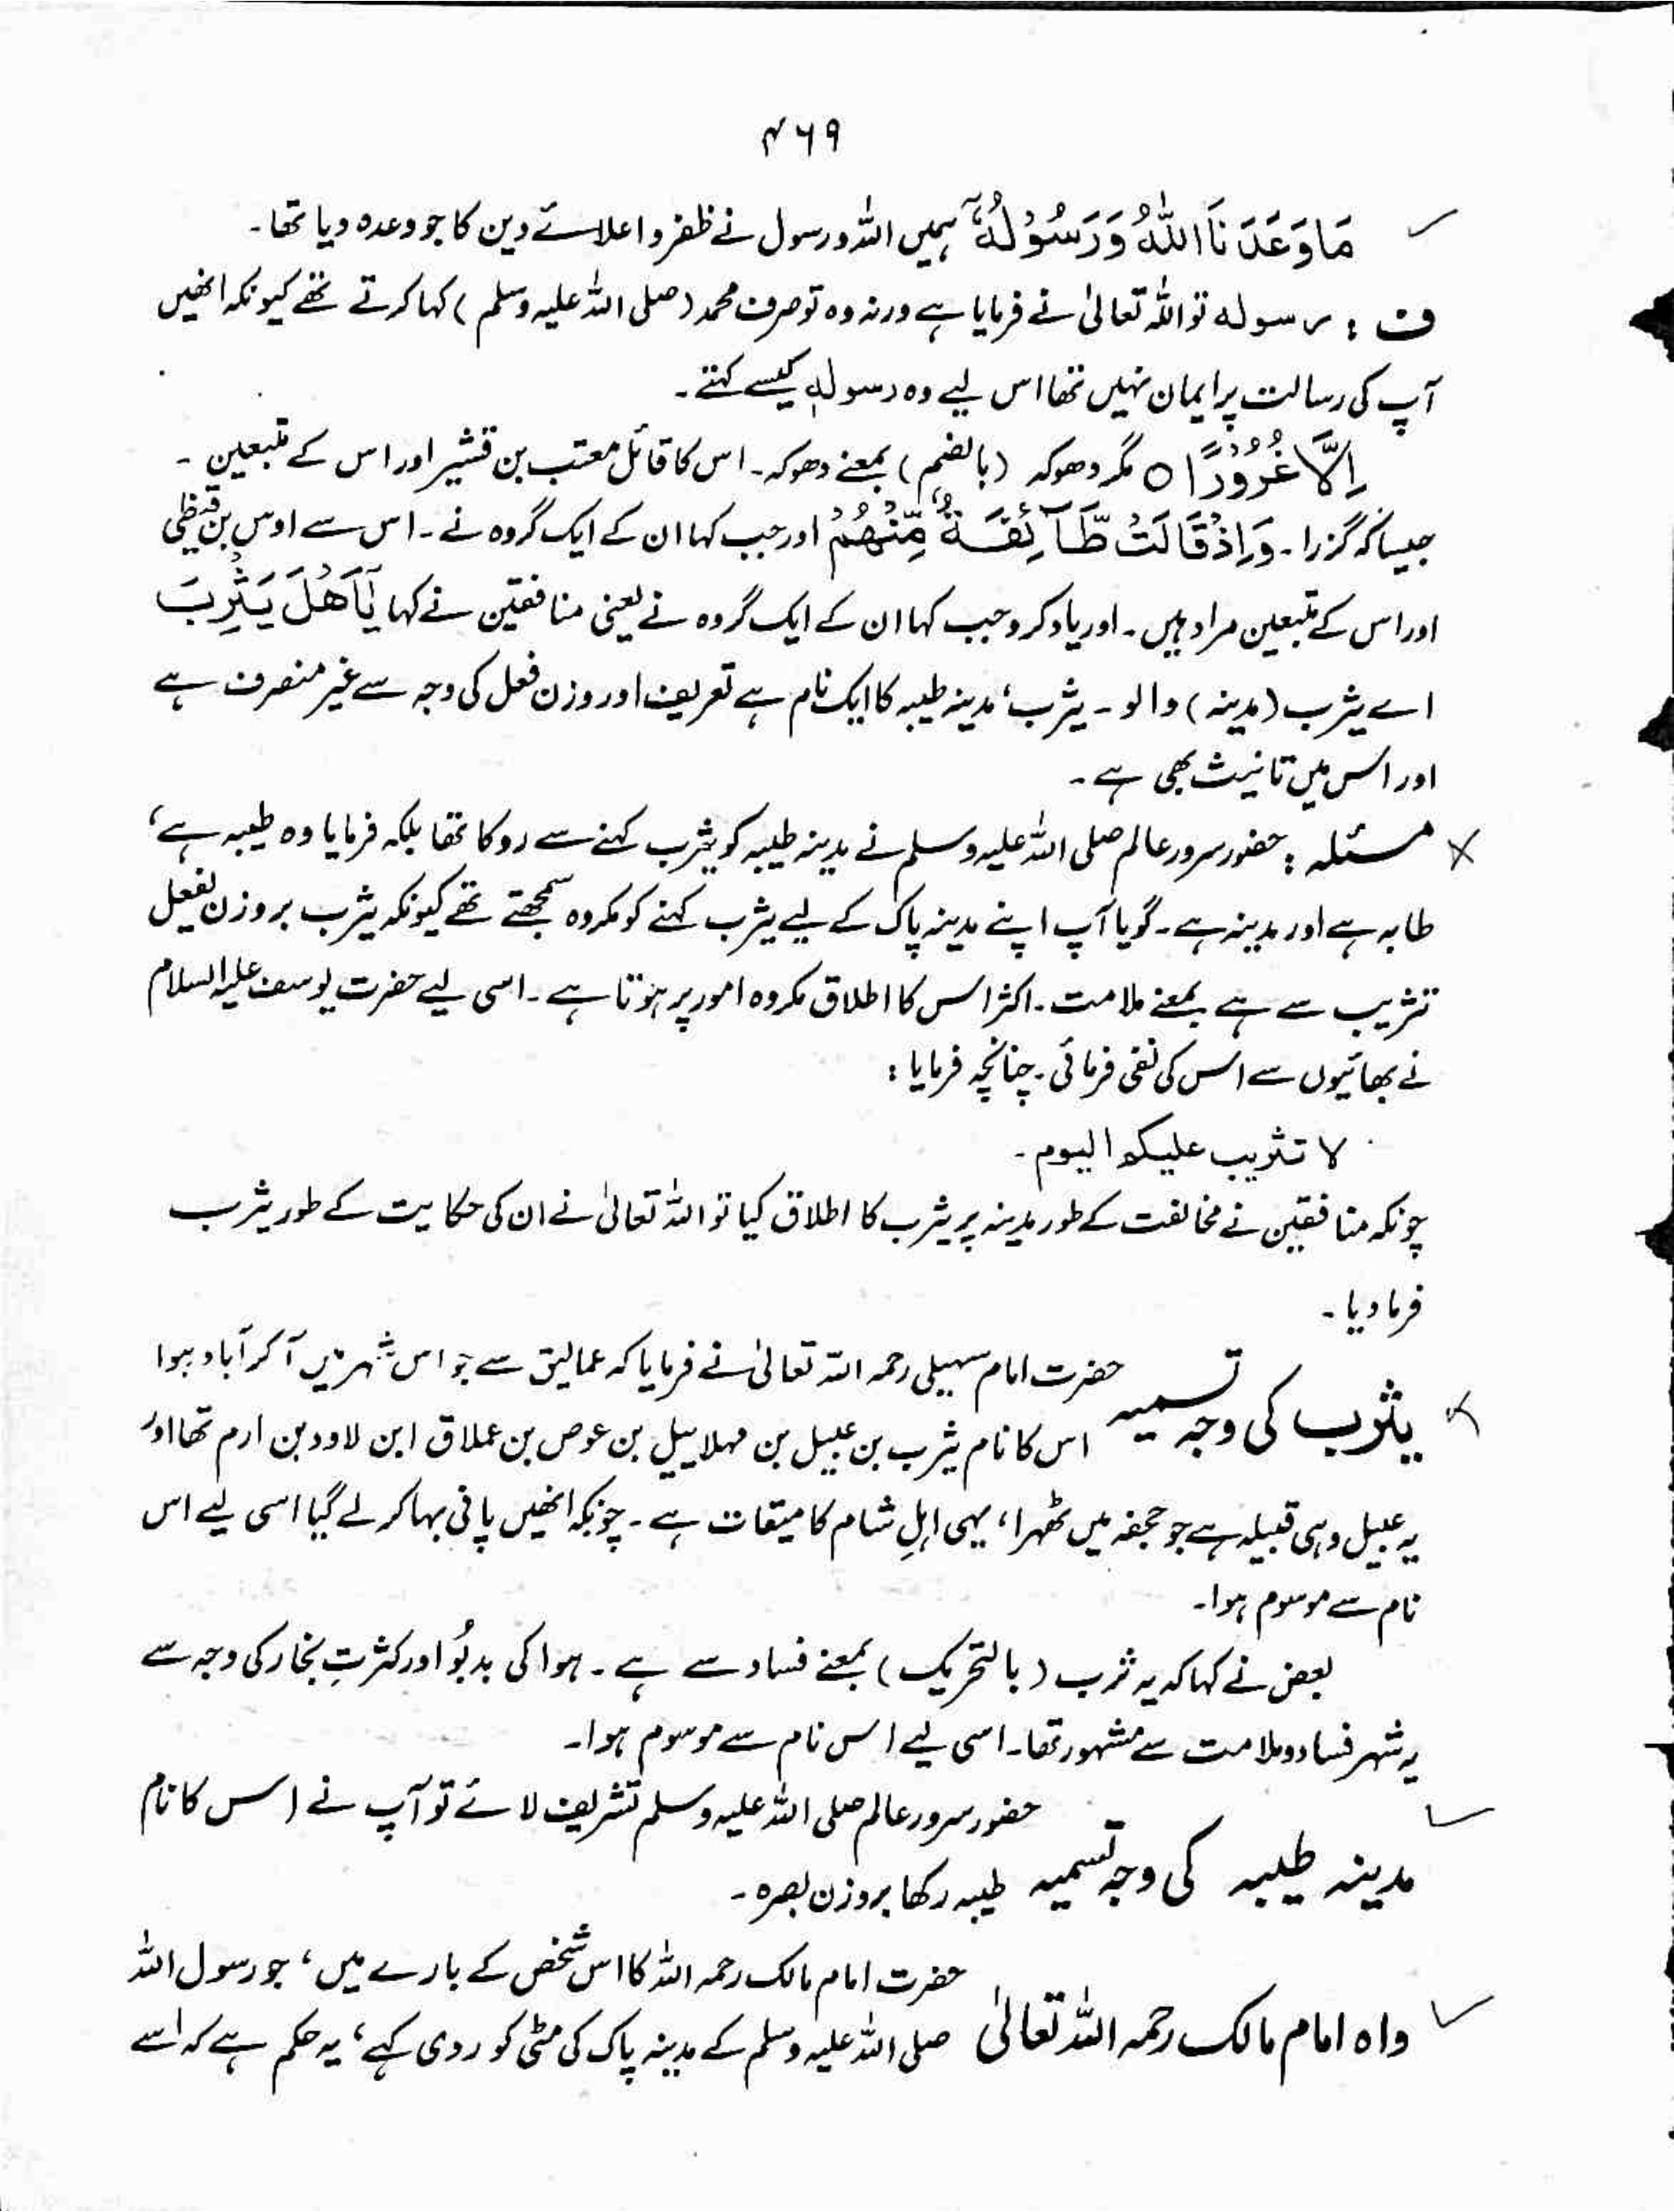 ۴۶۹
مَا وَعَدَنَا اللّٰهُ وَرَسُوْلُهٗٓ ہمیں اللہ و رسول نے ظفر و اعلائے دین کا جو وعدہ دیا تھا۔
ف : رسولہ تو اللہ تعالیٰ نے فرمایا ہے ورنہ وہ تو صرف محمد (صلی اللہ علیہ وسلم) کہا کرتے تھے کیونکہ انھیں
آپ کی رسالت پر ایمان نہیں تھا اس لیے وہ رسولہٖ کیسے کہتے۔
اِلَّا غُرُوْرًا ○ مگر دھوکہ (بالضم) بمعنے دھوکہ۔ اس کا قائل معتب بن قشیر اور اس کے متبعین۔
جیسا کہ گزرا۔ وَاِذْ قَالَتْ طَّآئِفَةٌ مِّنْهُمْ اور جب کہا ان کے ایک گروہ نے۔ اس سے اوس بن قیظی
اور اس کے متبعین مراد ہیں۔ اور یاد کرو جب کہا ان کے ایک گروہ نے یعنی منافقین نے کہا یٰٓاَهْلَ یَثْرِبَ
اے یثرب (مدینہ) والو۔ یثرب، مدینہ طیبہ کا ایک نام ہے تعریف اور وزن فعل کی وجہ سے غیر منصرف ہے
اور اس میں تانیث بھی ہے۔
مسئلہ : حضور سرور عالم صلی اللہ علیہ وسلم نے مدینہ طیبہ کو یثرب کہنے سے روکا تھا بلکہ فرمایا وہ طیبہ ہے،
طابہ ہے اور مدینہ ہے۔ گویا آپ اپنے مدینہ پاک کے لیے یثرب کہنے کو مکروہ سمجھتے تھے کیونکہ یثرب بروزن یفعل
تثریب سے ہے بمعنے ملامت۔ اکثر اس کا اطلاق مکروہ امور پر ہوتا ہے۔ اسی لیے حضرت یوسف علیہ السلام
نے بھائیوں سے اس کی نفی فرمائی۔ چنانچہ فرمایا :
لا تثریب علیکم الیوم۔
چونکہ منافقین نے مخالفت کے طور مدینہ پر یثرب کا اطلاق کیا تو اللہ تعالیٰ نے ان کی حکایت کے طور یثرب
فرما دیا۔
یثرب کی وجہ تسمیہ حضرت امام سہیلی رحمہ اللہ تعالیٰ نے فرمایا کہ عمالیق سے جو اس شہر میں آکر آباد ہوا
اس کا نام یثرب بن عبیل بن مہلاییل بن عوص بن عملاق ابن لاود بن ارم تھا اور
یہ عبیل وہی قبیلہ ہے جو جحفہ میں ٹھہرا، یہی اہلِ شام کا میقات ہے۔ چونکہ انھیں پانی بہا کر لے گیا اسی لیے اس
نام سے موسوم ہوا۔
بعض نے کہا کہ یہ ثرب (بالتحریک) بمعنے فساد سے ہے۔ ہوا کی بدبُو اور کثرتِ بخار کی وجہ سے
یہ شہر فساد و ملامت سے مشہور تھا۔ اسی لیے اس نام سے موسوم ہوا۔
حضور سرور عالم صلی اللہ علیہ وسلم تشریف لائے تو آپ نے اس کا نام
مدینہ طیبہ کی وجہ تسمیہ طیبہ رکھا بروزن بصرہ۔
حضرت امام مالک رحمہ اللہ کا اس شخص کے بارے میں، جو رسول اللہ
واہ امام مالک رحمہ اللہ تعالیٰ صلی اللہ علیہ وسلم کے مدینہ پاک کی مٹی کو ردی کہے، یہ حکم ہے کہ اسے